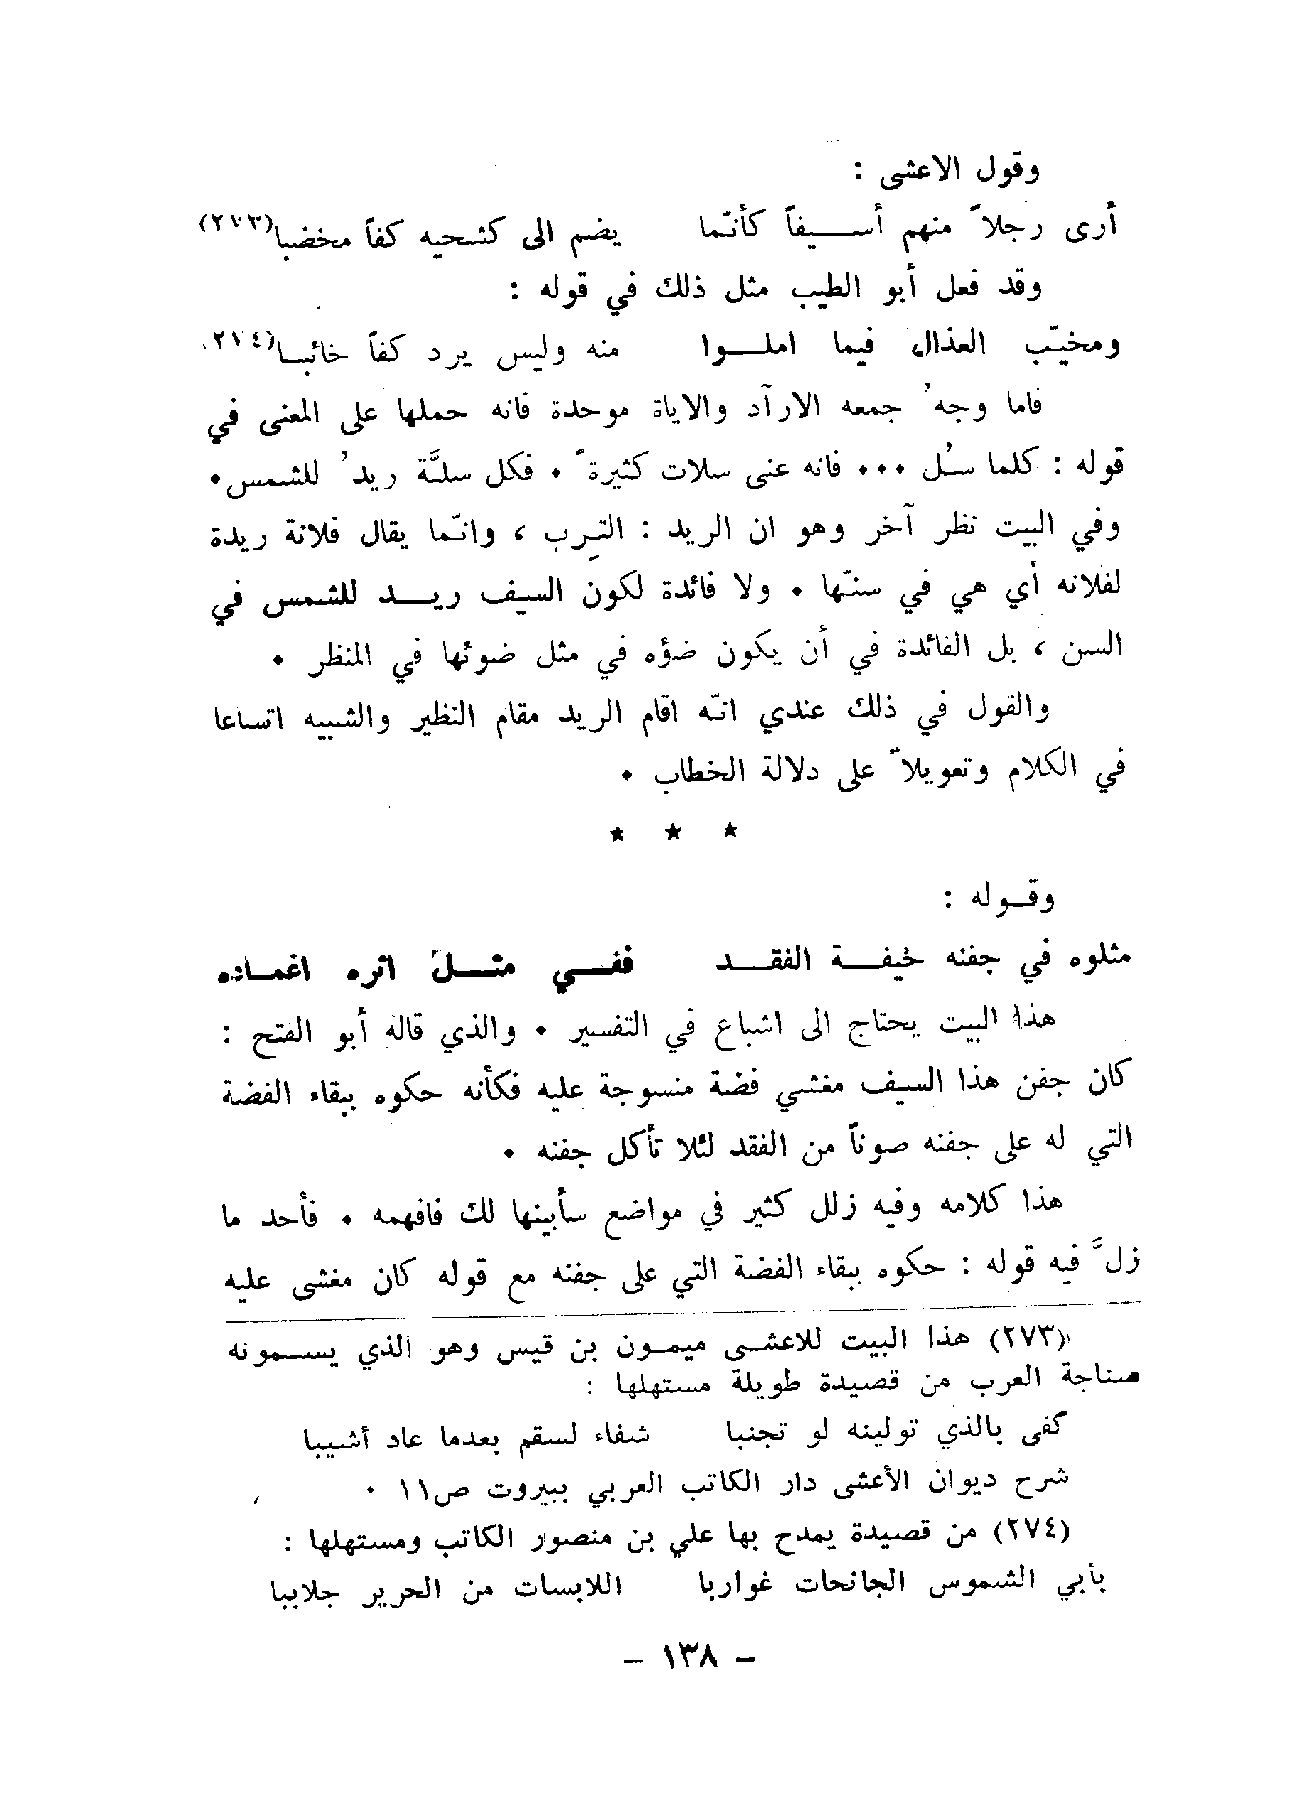 وقول الاعشى :
أرى رجلاً منهم أسيفاً كأنّما يضم الى كشحيه كفاً مخضبا(٢٧٣)
وقد فعل أبو الطيب مثل ذلك في قوله :
ومخيّب العذال فيما املوا منه وليس يرد كفاً خائبا(٢٧٤)
فاما وجهُ جمعه الارآد والاياة موحدة فانه حملها على المعنى في
قوله : كلما سُل ٠٠٠ فانه عنى سلات كثيرةً ٠ فكل سلَّة ريدُ للشمس٠
وفي البيت نظر آخر وهو ان الريد : التِرب ، وانّما يقال فلانة ريدة
لفلانه أي هي في سنّها ٠ ولا فائدة لكون السيف ريد للشمس في
السن ، بل الفائدة في أن يكون ضؤه في مثل ضوئها في المنظر ٠
والقول في ذلك عندي انّه اقام الريد مقام النظير والشبيه اتساعا
في الكلام وتعويلاً على دلالة الخطاب ٠
★ ★ ★
وقوله :
مثلوه في جفنه خيفة الفقد ففي مثل اثره اغماده
هذا البيت يحتاج الى اشباع في التفسير ٠ والذي قاله أبو الفتح :
كان جفن هذا السيف مغشي فضة منسوجة عليه فكأنه حكوه ببقاء الفضة
التي له على جفنه صوناً من الفقد لئلا تأكل جفنه ٠
هذا كلامه وفيه زلل كثير في مواضع سأبينها لك فافهمه ٠ فأحد ما
زلَّ فيه قوله : حكوه ببقاء الفضة التي على جفنه مع قوله كان مغشى عليه
(٢٧٣) هذا البيت للاعشى ميمون بن قيس وهو الذي يسمونه
صناجة العرب من قصيدة طويلة مستهلها :
كفى بالذي تولينه لو تجنبا شفاء لسقم بعدما عاد أشيبا
شرح ديوان الأعشى دار الكاتب العربي ببيروت ص١١ ٠
(٢٧٤) من قصيدة يمدح بها علي بن منصور الكاتب ومستهلها :
بأبي الشموس الجانحات غواربا اللابسات من الحرير جلاببا
– ١٣٨ –